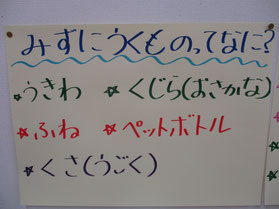 みずにうくものってなに?
☆うきわ ☆くじら(おさかな)
☆ふね ☆ペットボトル
☆くさ(うごく)